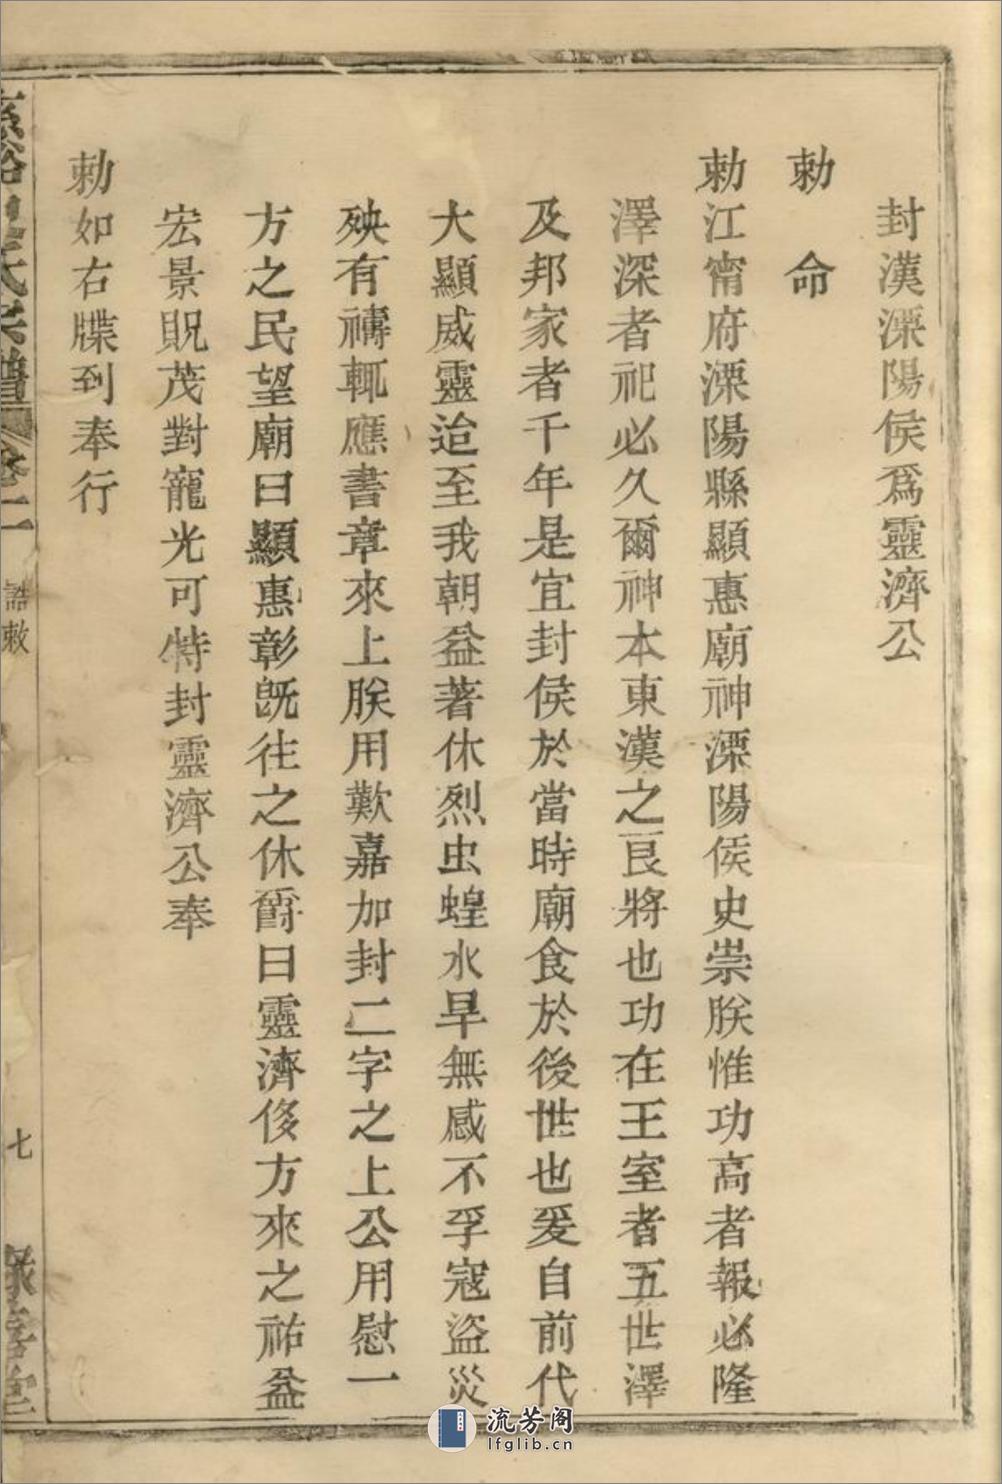 封漢溧陽侯爲靈濟公
勅命
勅江甯府溧陽縣顯惠廟神溧陽侯史崇朕惟功高者報必隆
澤深者祀必久爾神本東漢之良將也功在王室者五世澤
及邦家者千年是宜封侯於當時廟食於後世也爰自前代
大顯威靈迨至我朝益著休烈虫蝗水旱無感不孚寇盜災
殃有禱輒應書章來上朕用歎嘉加封二字之上公用慰一
方之民望廟曰顯惠彰旣往之休爵曰靈濟俟方來之祐益
宏景貺茂對寵光可特封靈濟公奉
勅如右牒到奉行
氏宗譜 卷二 誥敕 七
流芳阁
lfglib.cn